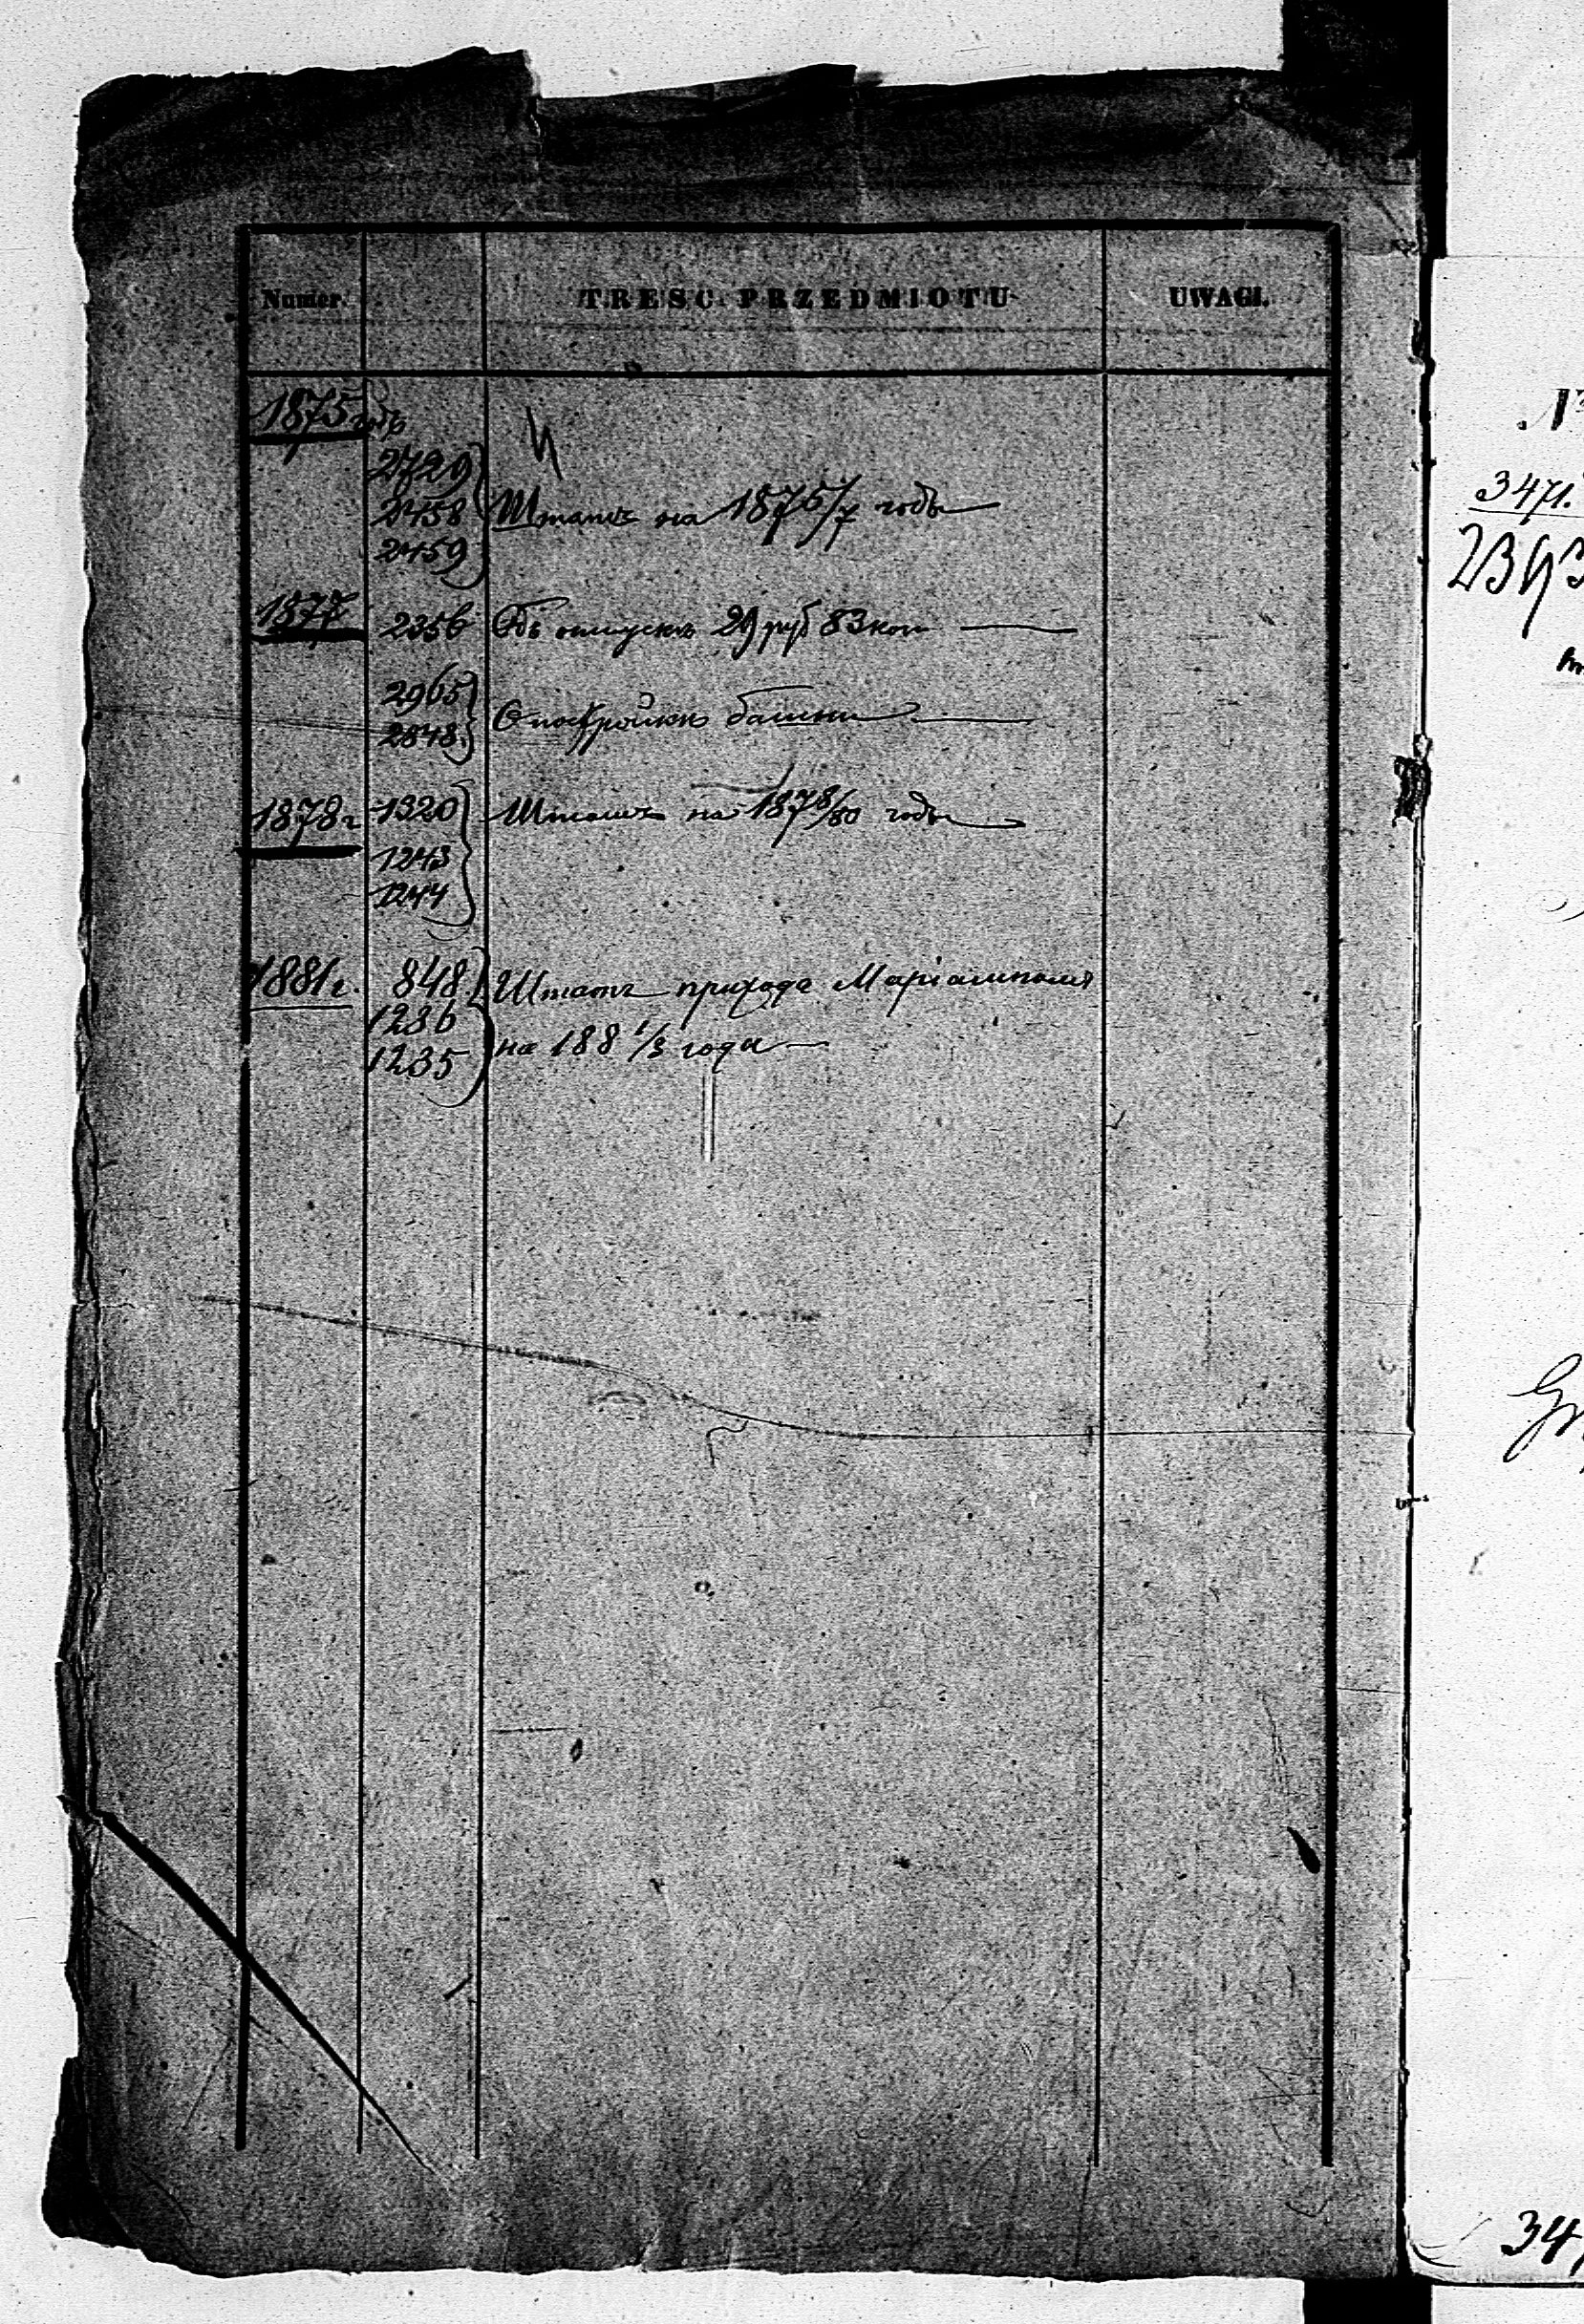 Numer. TRESC PRZEDMIOTU UWAGI.
1875 годъ
2729
2458 Штатъ на 1875/7 годы
2459
1877 2356 Объ отпускѣ 29 руб 83 коп
2965
2848 О постройкѣ башни
1878 г 1320 Штатъ на 1878/80 годы
1243
1244
1881 г. 848 Штатъ прихода Маріамполя
1236
1235 на 188 1/3 года
№
3471.
34